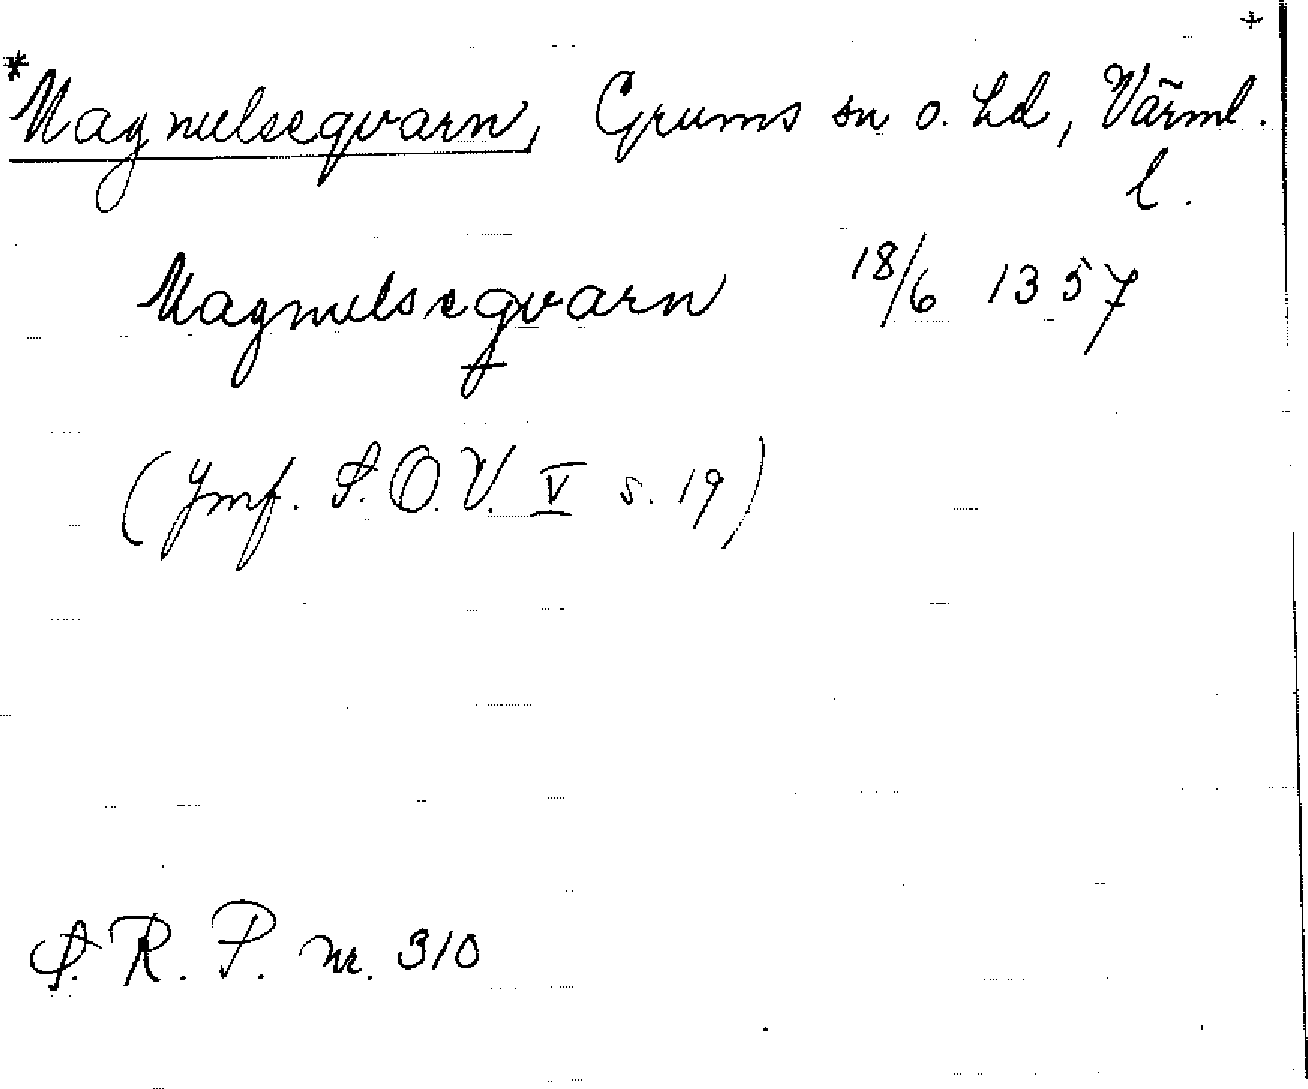 +
*Magnulseqvarn, Grums sn o. hd, Värml.
l.
Magnulseqvarn 18/6 1357
(Jmf. S.O.V. V s. 19)
S. R. P. nr. 310